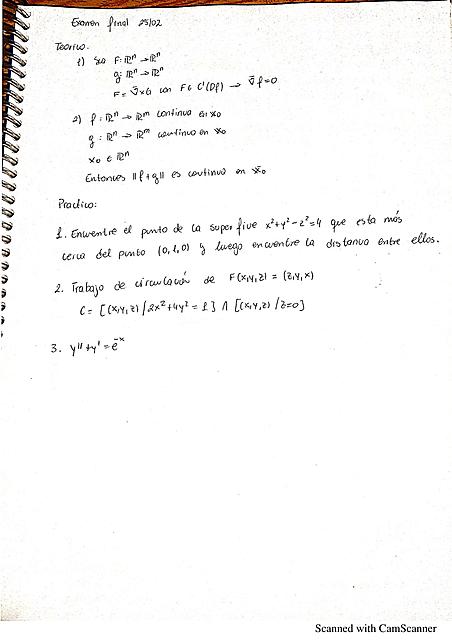 Examen final 25/02
Teorico.
1) Sea F: ℝⁿ → ℝⁿ
g: ℝⁿ → ℝⁿ
F = ∇̄×G con F ∈ C¹(Df) → ∇̄ f = 0
2) f: ℝⁿ → ℝᵐ continua en x₀
g: ℝⁿ → ℝᵐ continua en x₀
x₀ ∈ ℝⁿ
Entonces ||f+g|| es continua en x̄₀
Practico:
1. Encuentre el punto de la superficie x²+y²-z²=4 que esta más
cerca del punto (0,1,0) y luego encuentre la distancia entre ellos.
2. Trabajo de circulación de F(x,y,z) = (z,y,x)
C = [(x,y,z) / 2x²+4y² = 1] ∧ [(x,y,z) / z=0]
3. y''+y' = e⁻ˣ
Scanned with CamScanner